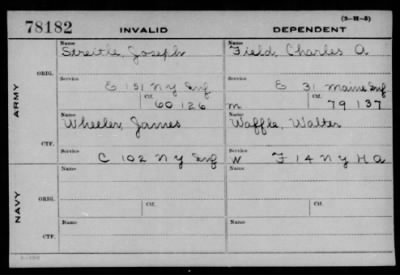 (3-11-5)
78182 INVALID DEPENDENT
Name Name
Streitle, Joseph Field, Charles A.
ARMY
ORIG.
Service Service
E 151 N Y Inf E 31 Maine Inf
Ctf. Ctf.
60 126 m 79 137
Name Name
Wheeler, James Waffle, Walter
CTF.
Service Service
C 102 N Y Inf W F 14 N Y H A
NAVY
Name Name
ORIG.
Service Ctf. Service Ctf.
Name Name
CTF.
Service Service